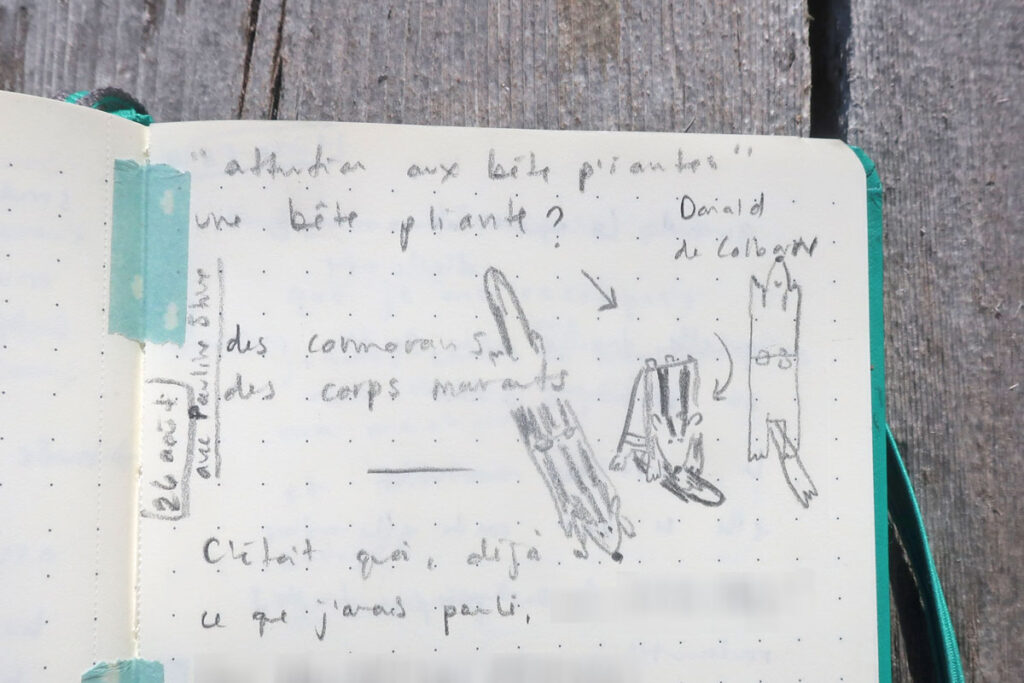 "attention aux bête pliantes"
une bête pliante ?
Donald
de Colbert
26 août
avec Pauline
des cormorans,
des corps marants
C'était quoi, déjà
ce que j'avais